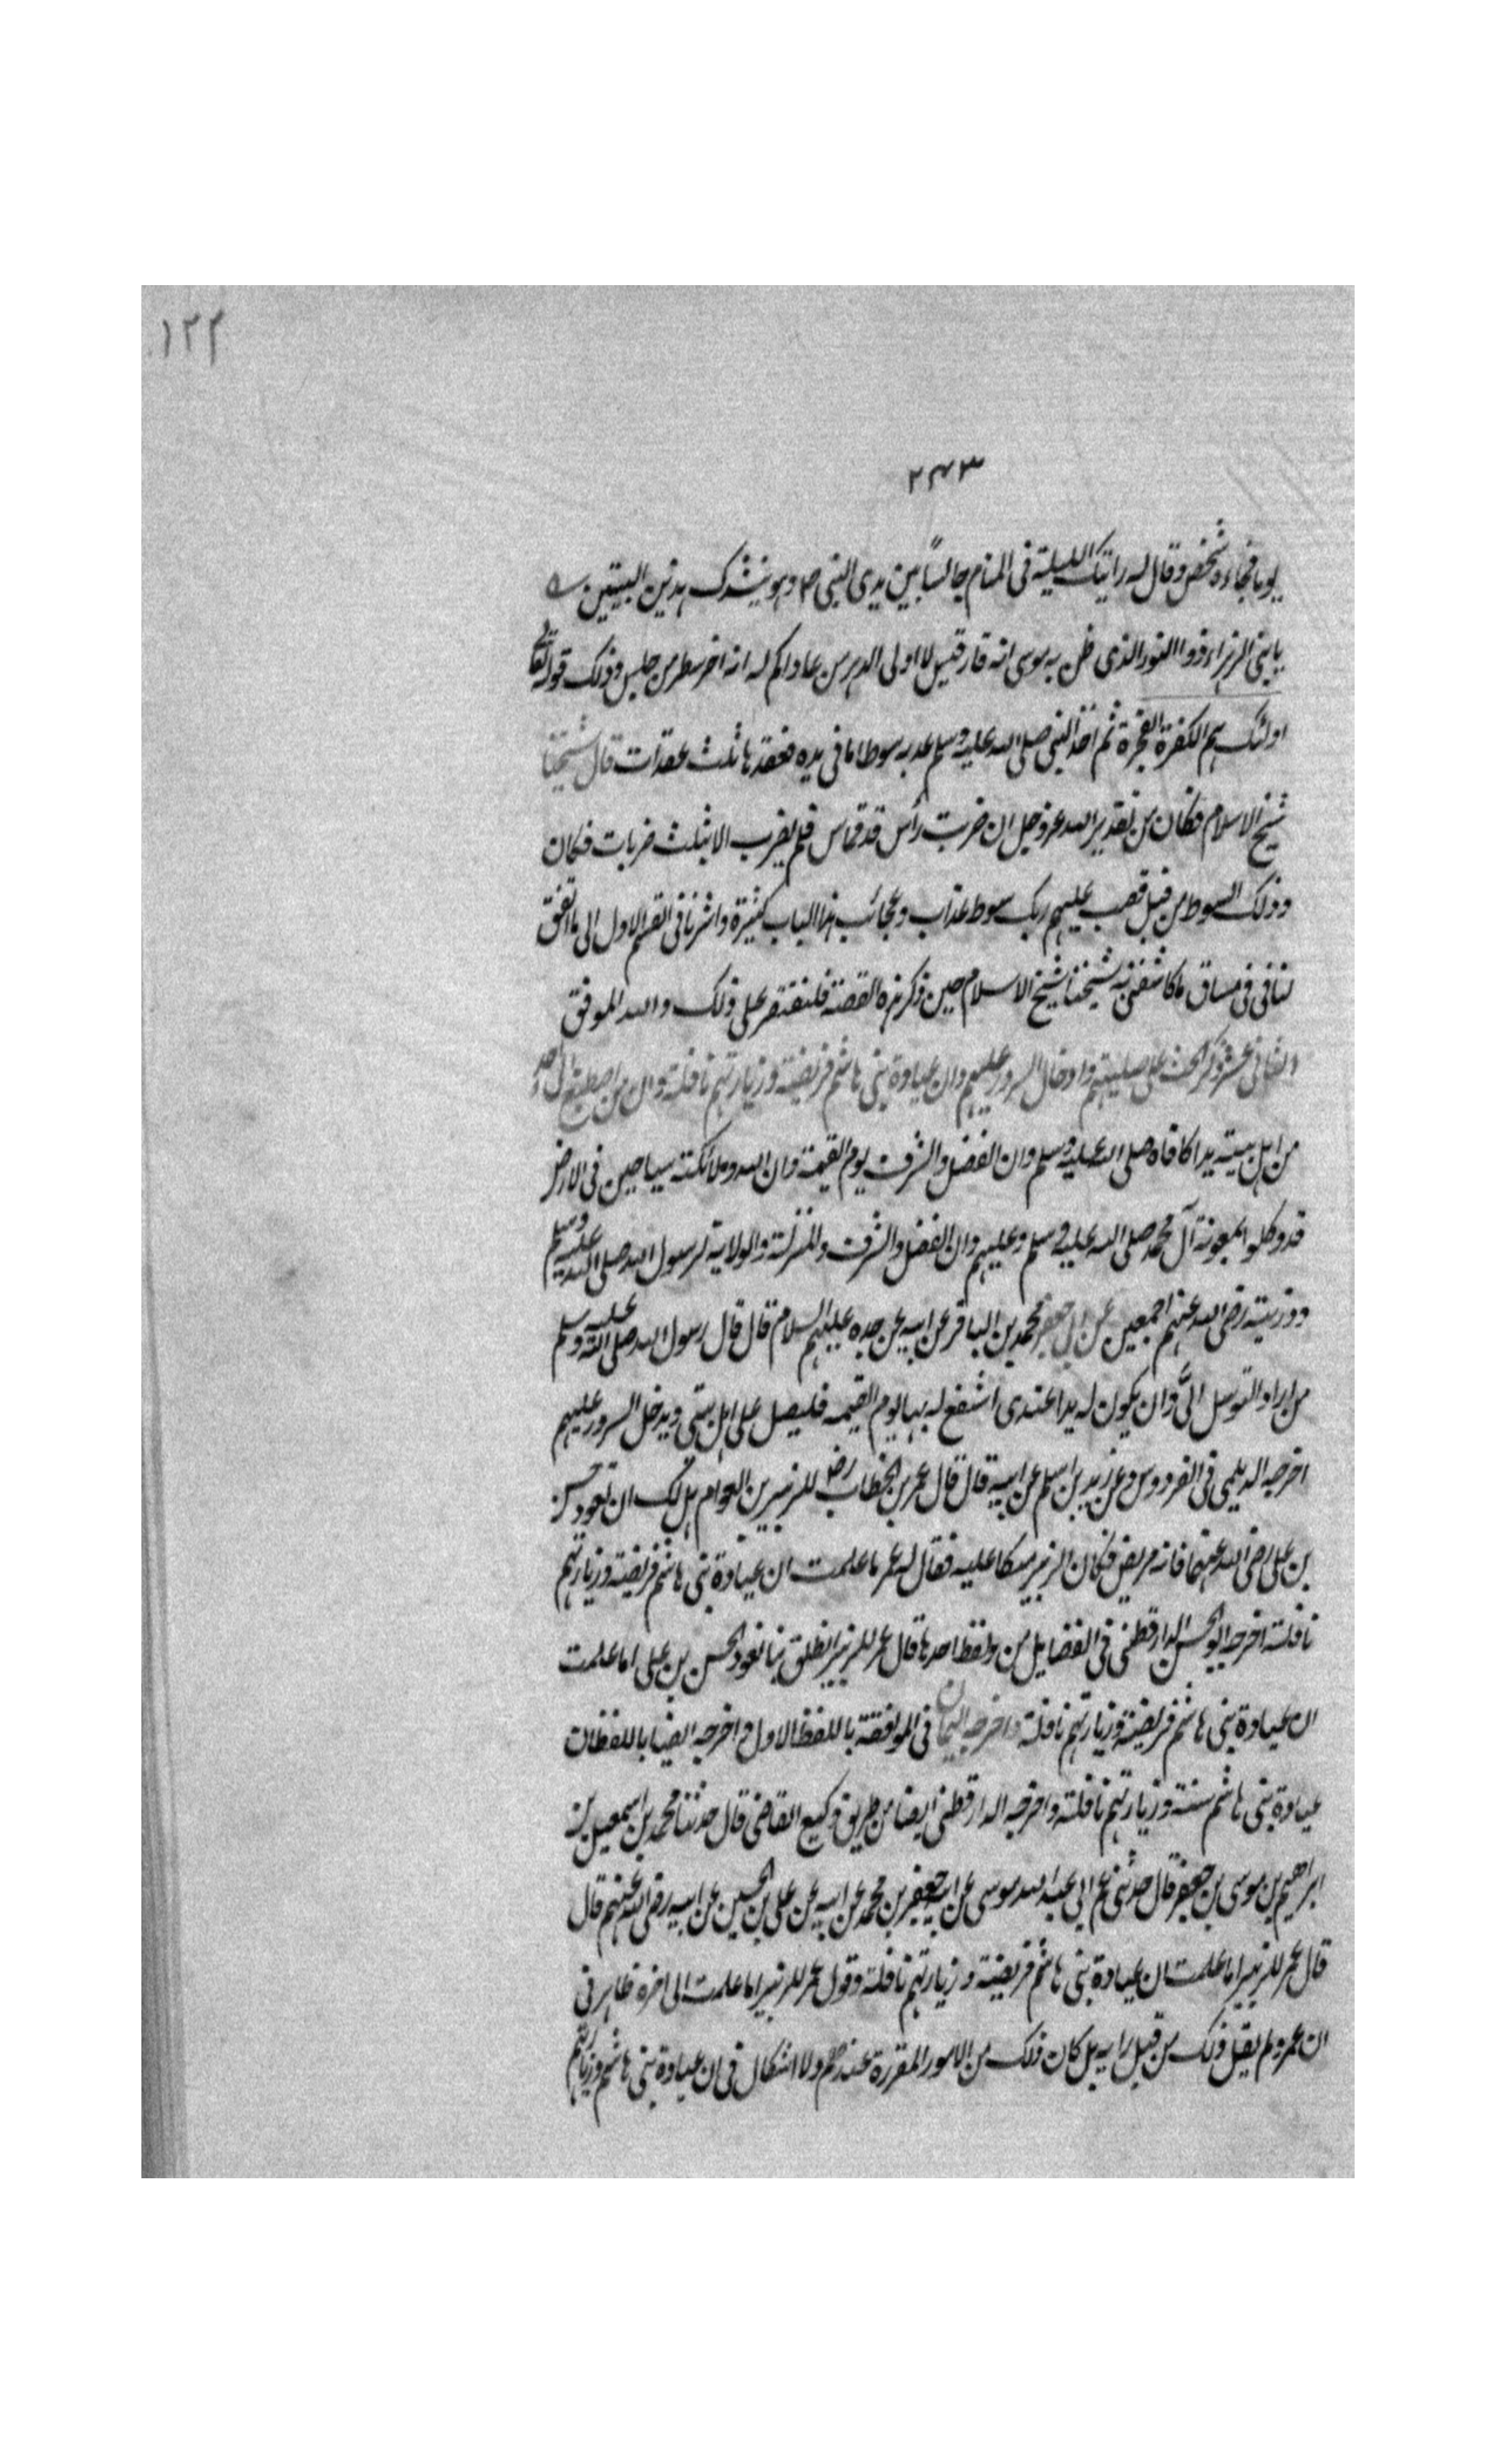 ١٢٢
٢٤٣
يوما فجاءه شخص وقال له رايتك الليلة في المنام جالسًا بين يدى النبى ص وهو ينشدك هذين البيتين
يا بنى الزهراء والنور الذى ظن به موسى انه نار قبس لا اولى الدهر من عاداكم له انه اخر سطر من عبس وذلك قوله تعالى
اولئك هم الكفرة الفجرة ثم اخذ النبى صلى الله عليه وسلم عذبه سوطا ما فى يده فعقدها ثلث عقدات قال شيخنا
شيخ الاسلام فكان من تقدير الله عز وجل ان ضربت راس قدقماس فلم يضرب الا بثلث ضربات فكان
وذلك السوط من قبل فصب عليهم ربك سوط عذاب وعجائب هذا الباب كثيرة واشرنا فى القسم الاول الى ما اتفق
لنا فى مساق ما كاشفنى به شيخنا شيخ الاسلام حين ذكر هذه القصة فلنقتصر على ذلك والله الموفق
الثانى عشر ذكر الحث على صلتهم وادخال السرور عليهم وان عيادة بنى هاشم فريضة وزيارتهم نافلة وان من اصطنع الى احد
من اهل بيته يدا كافاه صلى الله عليه وسلم وان الفضل والشرف يوم القيمة وان لله وملائكته سياحين فى الارض
قد وكلوا بمعونة آل محمد صلى الله عليه وسلم وعليهم وان الفضل والشرف والمنزلة والولاية لرسول الله صلى الله عليه وسلم
وذريته رضى الله عنهم اجمعين عن ابى جعفر محمد بن الباقر عن ابيه عن جده عليهم السلام قال قال رسول الله صلى الله عليه وسلم
من اراد التوسل الىّ وان يكون له يدا عندى اشفع له بها يوم القيمه فليصل على اهل بيتى ويدخل السرور عليهم
اخرجه الديلمى فى الفردوس وعن زيد بن اسلم عن ابيه قال قال عمر بن الخطاب رض للزبير بن العوام هل لك ان تعود حسن
بن على رضى الله عنهما فانه مريض فكان الزبير تلكا عليه فقال له عمر ما علمت ان عيادة بنى هاشم فريضة وزيارتهم
نافلة اخرجه ابو الحسن الدارقطنى فى الفضايل من ولفظ احدها قال عمر للزبير انطلق بنا نعود الحسن بن على اما علمت
ان عيادة بنى هاشم فريضة وزيارتهم نافلة واخرجه السمان فى الموافقة باللفظ الاول واخرجه ايضا باللفظ ان
عيادة بنى هاشم سنة وزيارتهم نافلة واخرجه الدارقطنى ايضا من طريق وكيع القاضى قال حدثنا محمد بن اسمعيل بن
ابراهيم بن موسى بن جعفر قال حدثنى عم ابى عبد الله موسى عن ابيه جعفر بن محمد عن ابيه عن على بن الحسين عن ابيه رضى الله عنهم قال
قال عمر للزبير اما علمت ان عيادة بنى هاشم فريضة وزيارتهم نافلة وقول عمر للزبير اما علمت الى اخره ظاهر فى
ان عمر ولم يقل ذلك من قبل رايه بل كان ذلك من الامور المقررة عندهم ولا اشكال فى ان عيادة بنى هاشم وزيارتهم